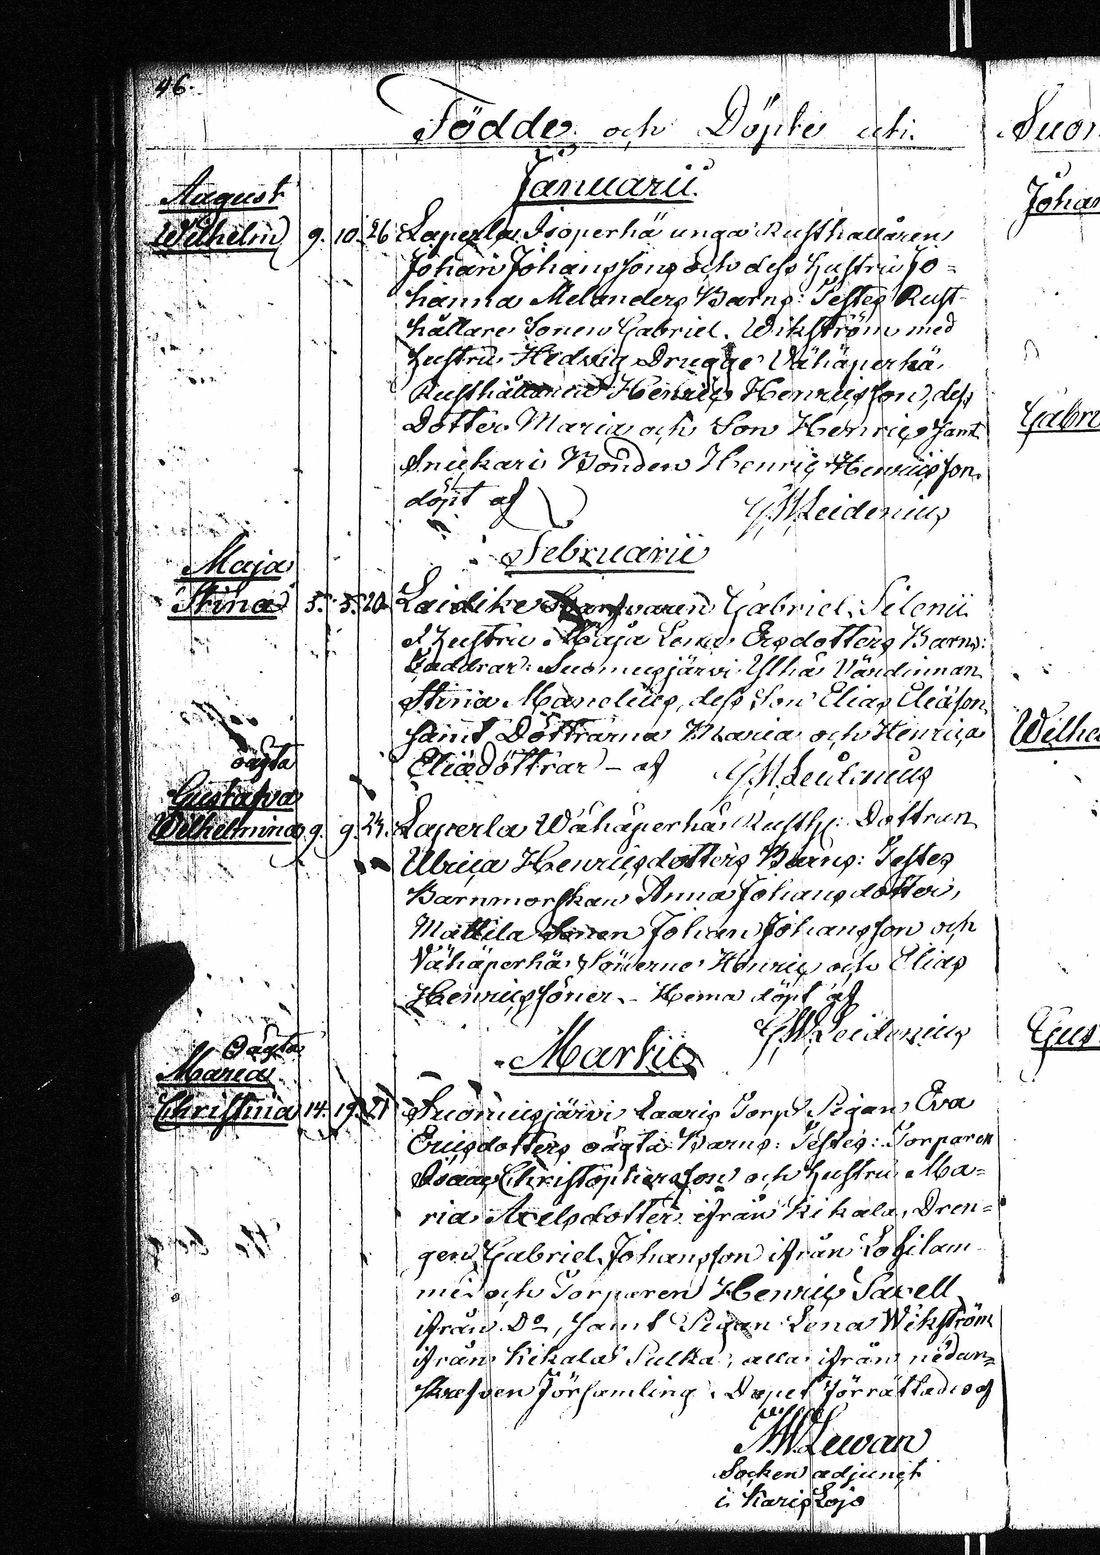 46.
Födde och Döpte uti
Januarii
August
Wilhelm 9. 10. 26 Laperla Isoperhä unga Rusthållaren
Johan Johanssons och dess hustru Jo=
hanna Melanders Barn: Testes Rust-
hållare Sonen Gabriel Wikström med
hustru Hedvig Drugge Vähäperhä
Rusthållaren Henric Henricsson, dess
Dotter Maria och Son Henric samt
Snickari Bonden Henric Henricsson
döpt af G.W.Leidenius
Februarii
Maja
Stina 5. 5. 20 Laidike Gabriel Silenii
& hustru Maja Lena Ersdotters Barn:
Faddrar: Suomusjärvi Ylhä Värdinnan
Stina Manelius, dess Son Elias Eliäson,
samt Döttrarna Maria och Henrica
Eliædöttrar - af G.W.Leidenius
oägta
Gustafva
Wilhelmina 9. 9. 24. Laperla Wähäperhä Rusth: Dottren
Ulrica Henricsdotters Barn: Testes
Barnmorskan Anna Johansdotter,
Mattila Sonen Johan Johansson och
Vähäperhä Sönerne Henric och Elias
Henricssöner - Hema döpt af
G.W.Leidenius
Martii
Oägta
Maria
Christina 14. 19. 21 Suomusjärvi Laaris Torp Pigan Eva
Ericsdotters oägta Barn: Testes: Torparen
Isaac Christophersson och hustru Ma=
ria Axelsdotter ifrån Kikala, Dren=
gen Gabriel Johansson ifrån Lohilam-
mi och Torparen Henric Saxell
ifrån Do, samt Pigan Lena Wikström
ifrån Kikala Pulka, alla ifrån nedan=
skrefven Församling. Dopet förrättades af
A.W.Lewan
Socken adjunct
i Karis Lojo
Suom
Johan
Gabri
Wilhe
Gus